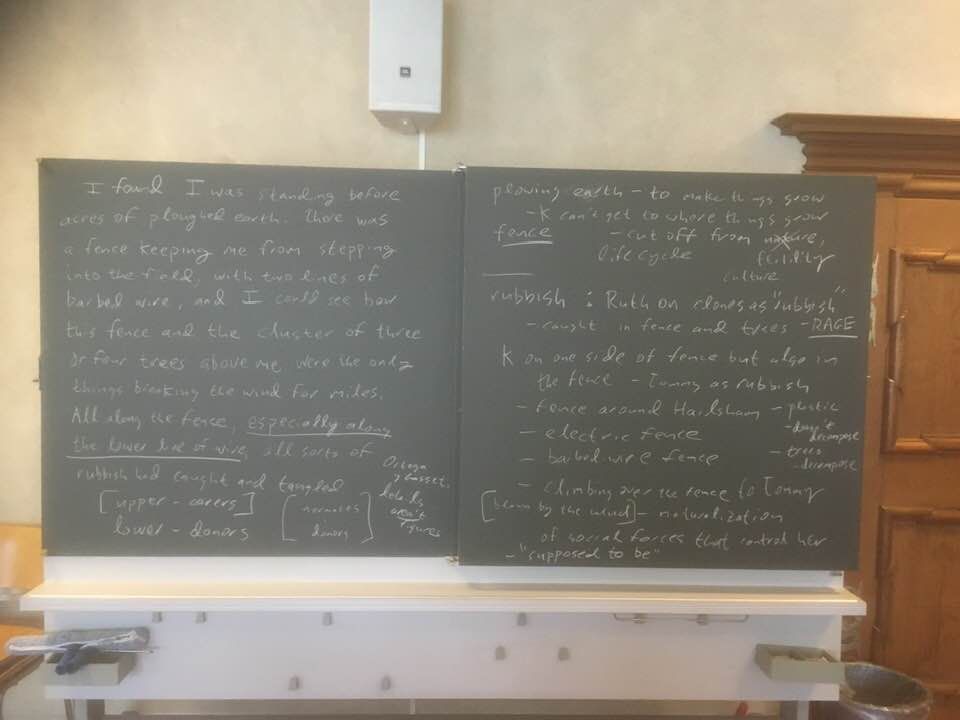 I found I was standing before
acres of ploughed earth. There was
a fence keeping me from stepping
into the field, with two lines of
barbed wire, and I could see how
this fence and the cluster of three
or four trees above me were the only
things breaking the wind for miles.
All along the fence, especially along
the lower line of wire, all sorts of
rubbish had caught and tangled
[upper - carers]
lower - donors
[normales
donors]
Ortega
y Gasset:
aren't
plowing earth - to make things grow
- K can't get to where things grow
fence
- cut off from nature,
life cycle
fertility
culture
rubbish : Ruth on clones as "rubbish"
- caught in fence and trees - RAGE
K on one side of fence but also in
the fence - Tommy as rubbish
- fence around Hailsham
- plastic
- doesn't
decompose
- electric fence
- trees
- decompose
- barbed wire fence
- climbing over the fence to Tommy
[blown by the wind] - naturalization
of social forces that control her
- "supposed to be"
JBL